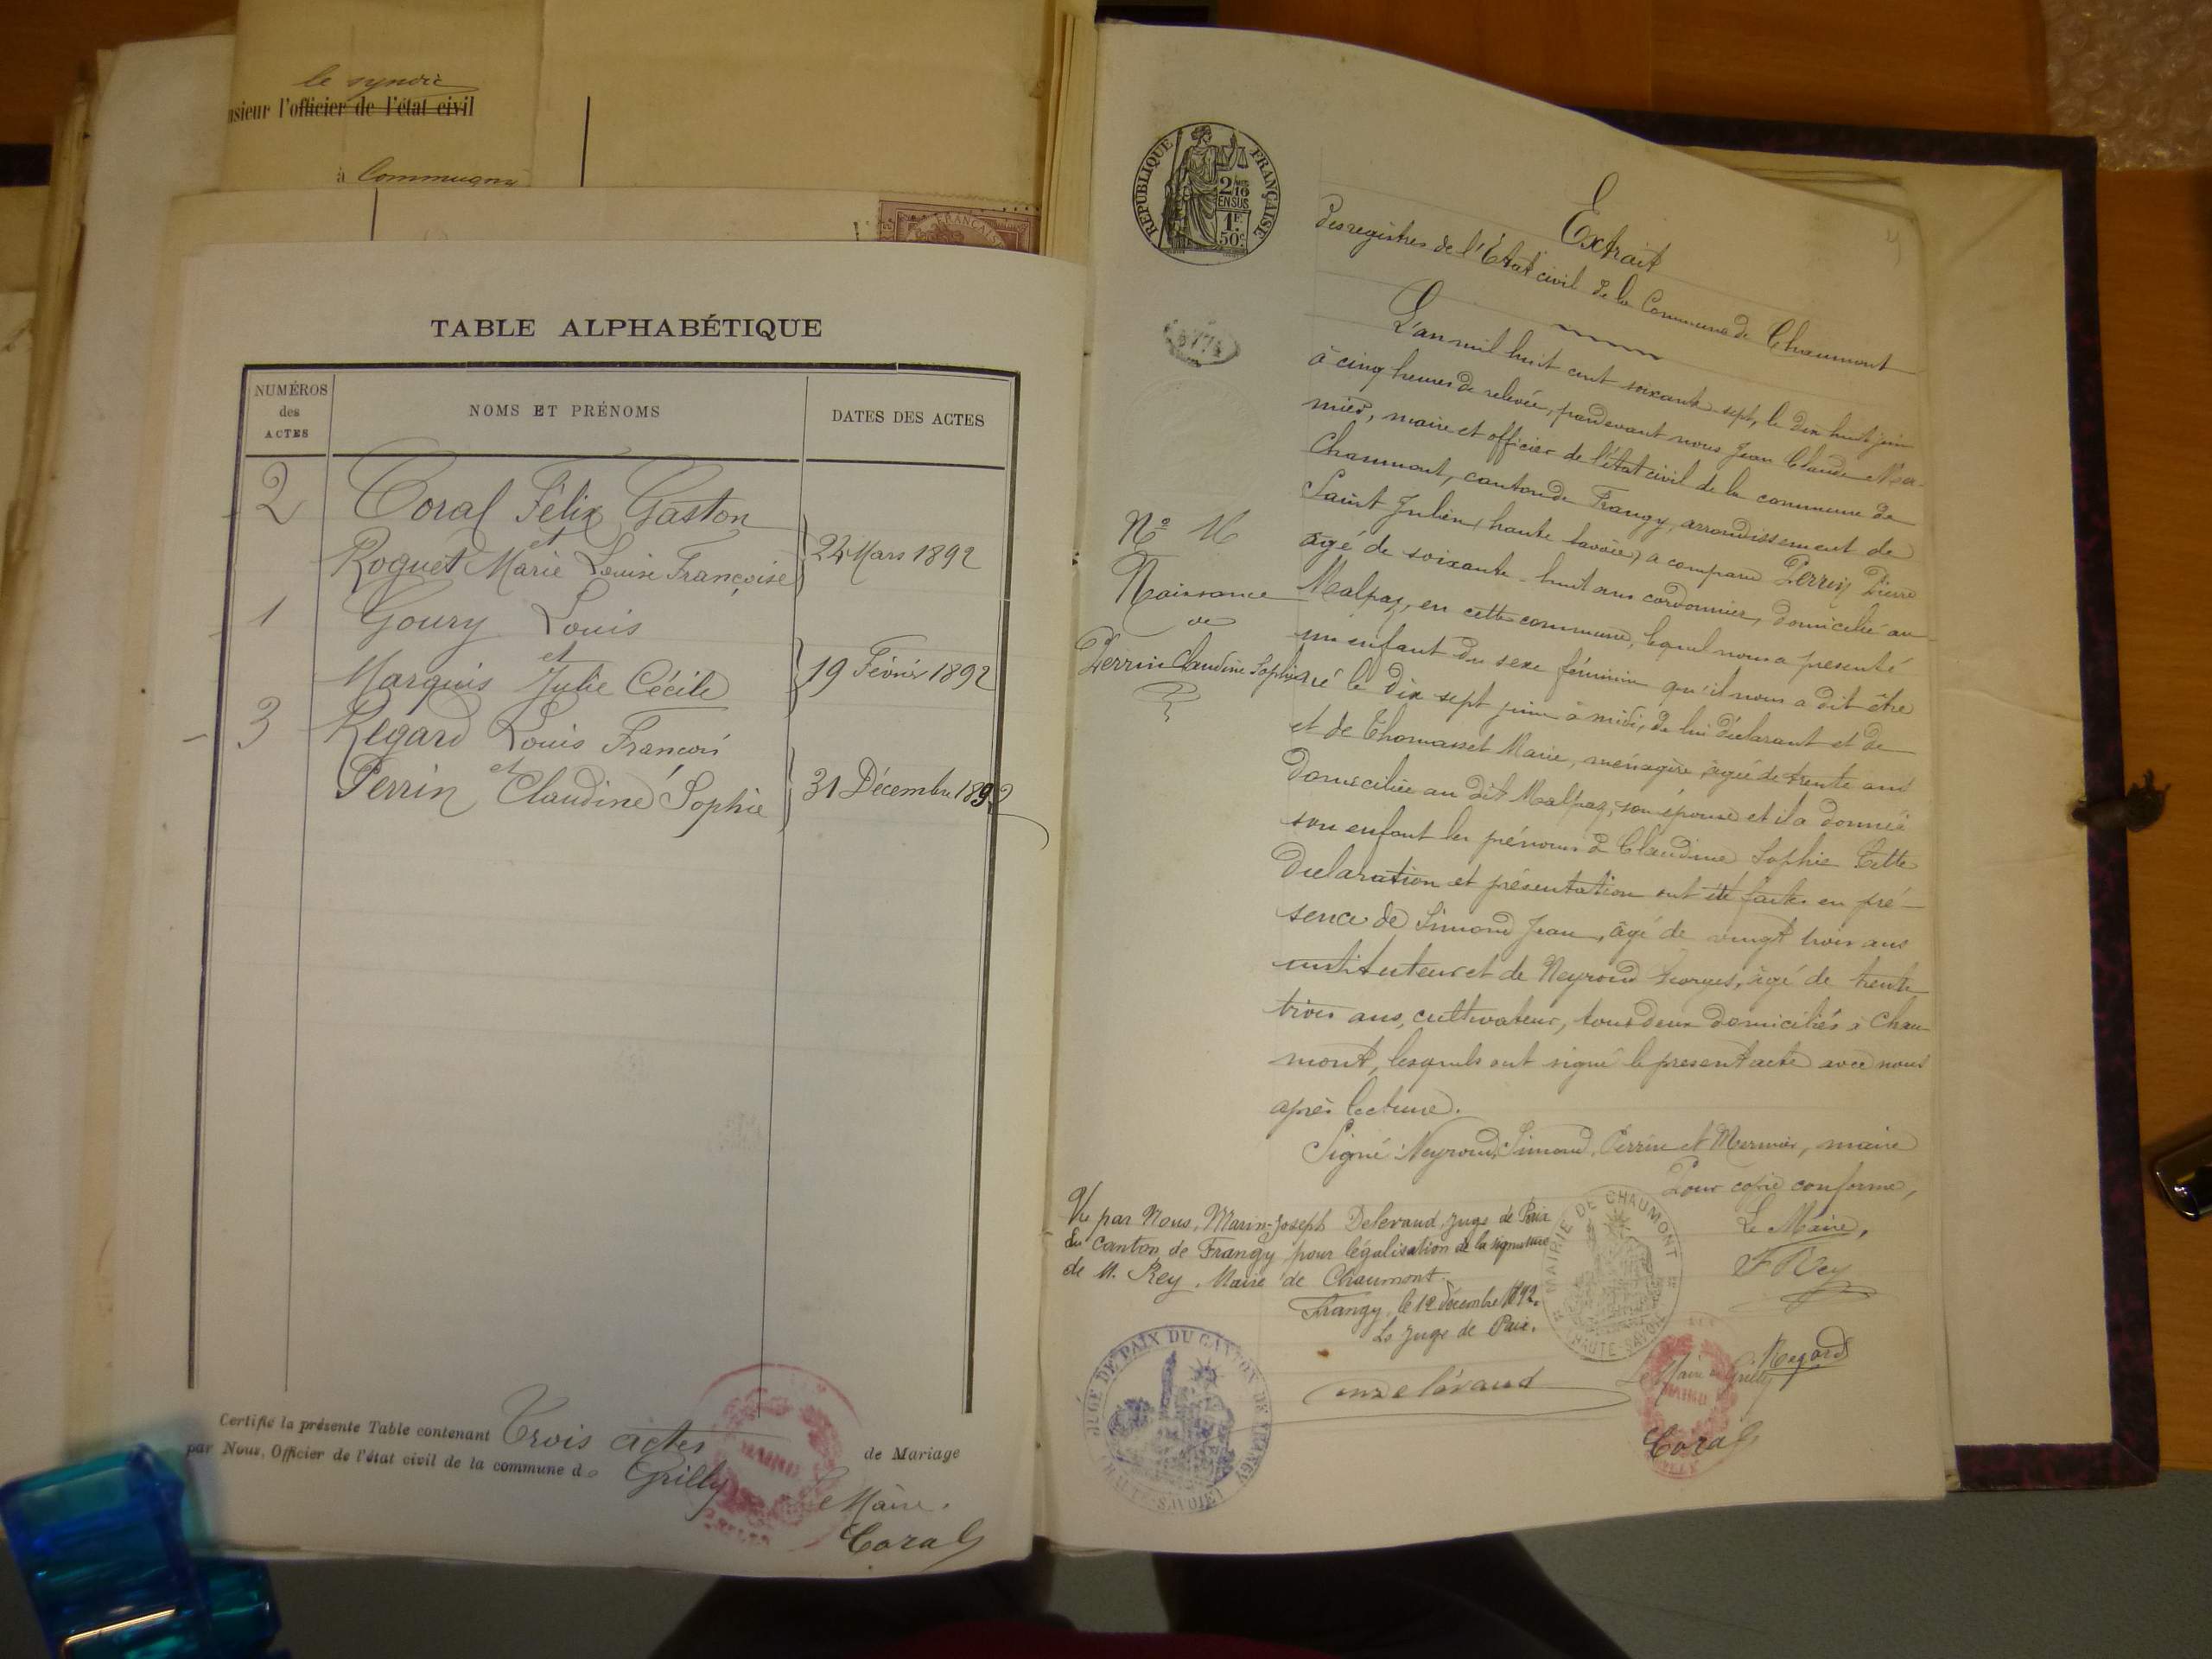 le syndic
nsieur l'officier de l'état civil
à Commugny
FRANÇAIS
TABLE ALPHABÉTIQUE
NUMÉROS
des
ACTES
NOMS ET PRÉNOMS
DATES DES ACTES
2 Coral Félix Gaston
et
Roguet Marie Louise Françoise
24 Mars 1892
1 Goury Louis
et
Marquis Julie Cécile
19 Février 1892
3 Regard Louis François
et
Perrin Claudine Sophie
31 Décembre 1892
Certifie la présente Table contenant Trois actes de Mariage
par Nous, Officier de l'état civil de la commune de Grilly
Le Maire.
Coral
RÉPUBLIQUE FRANÇAISE
2/10
EN SUS
1F
50c
Extrait
des registres de l'Etat civil de la Commune de Chaumont
L'an mil huit cent soixante-sept, le dix huit juin
à cinq heures de relevée, pardevant nous Jean Claude Mer-
mier, maire et officier de l'état civil de la commune de
Chaumont, canton de Frangy, arrondissement de
Saint Julien, (haute Savoie) a comparu Perrin Pierre
âgé de soixante-huit ans cordonnier, domicilié au
Malpaz, en cette commune, lequel nous a présenté
un enfant du sexe féminin qu'il nous a dit être
né le dix sept juin à midi, de lui déclarant et de
et de Thomasset Marie, ménagère, âgée de trente ans
domiciliée au dit Malpaz, son épouse et il a donné à
son enfant les prénoms de Claudine Sophie Cette
déclaration et présentation ont été faites en pré-
sence de Simond Jean, âgé de vingt trois ans
instituteur et de Neyroud Georges, âgé de trente
trois ans, cultivateur, tous deux domiciliés à Chau-
mont, lesquels ont signé le present acte avec nous
après lecture.
Signé: Neyroud, Simond, Perrin et Mermier, maire
Pour copie conforme,
Le Maire,
F Rey
No 16
Naissance
de
Perrin Claudine Sophie
Vu par Nous, Marin-Joseph Delevaud, Juge de Paix
du canton de Frangy pour légalisation de la signature
de M. Rey, Maire de Chaumont.
Frangy, le 12 décembre 1892.
Le Juge de Paix.
MAIRIE DE CHAUMONT
HAUTE-SAVOIE
JUGE DE PAIX DU CANTON DE FRANGY
(HAUTE-SAVOIE)
Regard
Le Maire de Grilly
Coral